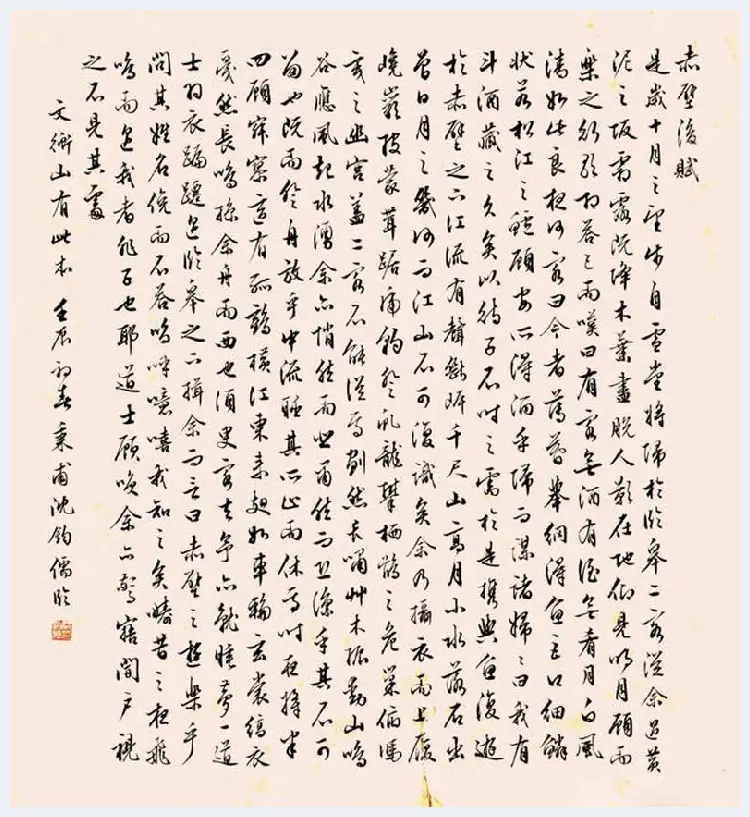 赤壁後賦
是歲十月之望步自雪堂將歸於臨皋二客從余過黃
泥之坂霜露既降木葉盡脫人影在地仰見明月顧而
樂之行歌相答已而嘆曰有客無酒有酒無肴月白風
清如此良夜何客曰今者薄暮舉網得魚巨口細鱗
狀若松江之鱸顧安所得酒乎歸而謀諸婦婦曰我有
斗酒藏之久矣以待子不時之需於是攜與魚復遊
於赤壁之下江流有聲斷岸千尺山高月小水落石出
曾日月之幾何而江山不可復識矣余乃攝衣而上履
巉巖披蒙茸踞虎豹登虬龍攀栖鶻之危巢俯馮
夷之幽宮蓋二客不能從焉劃然長嘯艸木振動山鳴
谷應風起水湧余亦悄然而悲肅然而恐凜乎其不可
留也既而登舟放乎中流聽其所止而休焉時夜將半
四顧寂寥適有孤鶴橫江東來翅如車輪玄裳縞衣
戛然長鳴掠余舟而西也須臾客去予亦就睡夢一道
士羽衣蹁躚過臨皋之下揖余而言曰赤壁之遊樂乎
問其姓名俛而不答嗚呼噫嘻我知之矣疇昔之夜飛
鳴而過我者非子也耶道士顧笑余亦驚寤開戶視
之不見其處
文衡山有此本 壬辰初春 秉甫沈鈞儒臨